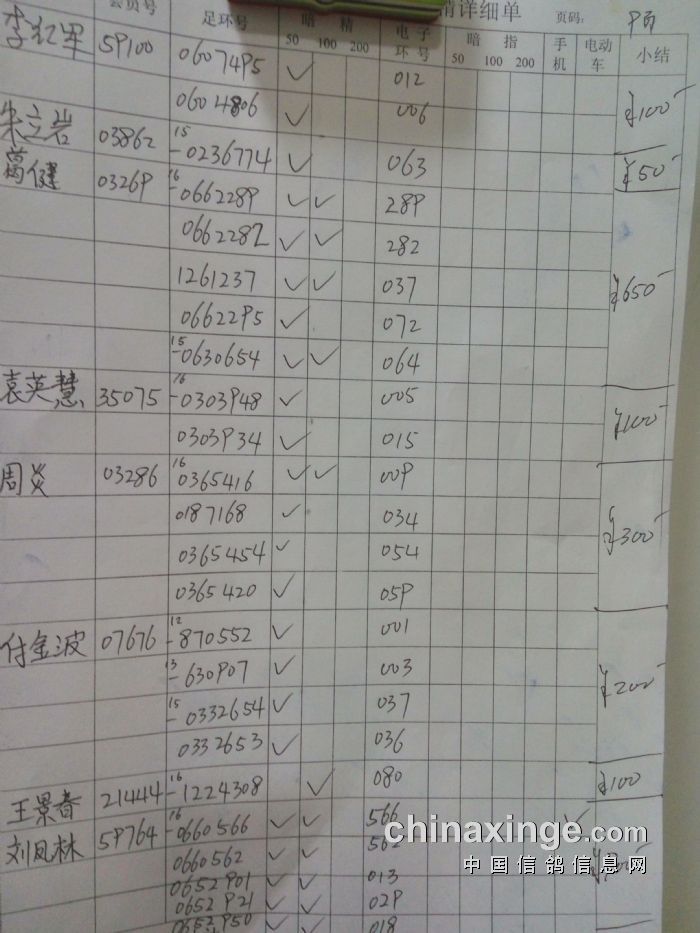 会员号 足环号 暗 精 电子环号 暗 指 手机 电动车 小结
情详细单 页码:
50 100 200 50 100 200
李红军 59100 0607495 ✓ 012
0604806 ✓ 006 ¥100-
朱立岩 03862 15-0236774 ✓ 063 ¥50-
葛健 03269 16-0662289 ✓ ✓ 289
0662282 ✓ ✓ 282
1261237 ✓ ✓ 037 ¥650-
0662295 ✓ 072
15-0630654 ✓ ✓ 064
袁英慧 35075 16-0303948 ✓ 005
0303934 ✓ 015 ¥100-
周炎 03286 16 0365416 ✓ ✓ 009
0187168 ✓ 034 ¥300-
0365454 ✓ 054
0365420 ✓ 059
付金波 07676 12-870552 ✓ 001
13-630907 ✓ 003 ¥200-
15-0332654 ✓ 037
0332653 ✓ 036
王景春 21444 16-1224308 ✓ 080 ¥100
刘凤林 59764 16-0660566 ✓ ✓ 566 ✓
0660562 ✓ ✓ 562
0652901 ✓ ✓ 013
0652921 ✓ ✓ 029
0652950 ✓ ✓ 018
chinaxinge.com
中国信鸽信息网